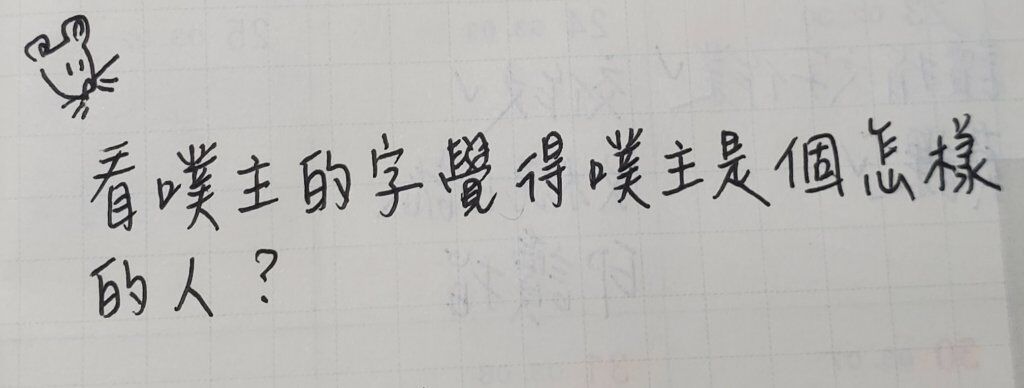 看噗主的字覺得噗主是個怎樣
的人？